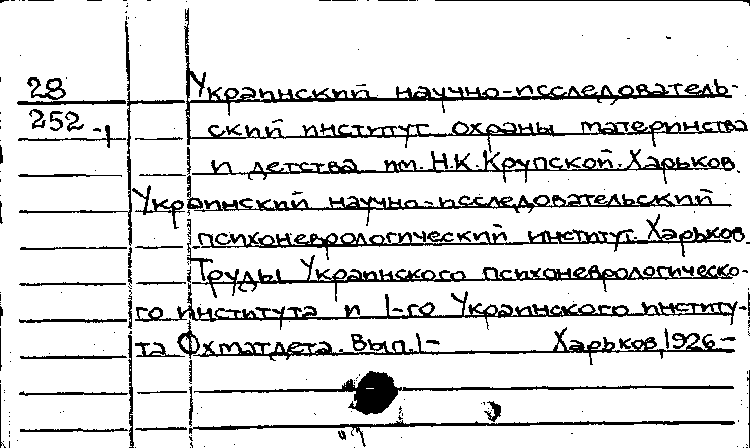 28 Украинский научно-исследователь-
252-1 ский институт охраны материнства
и детства им. Н.К.Крупской. Харьков.
Украинский научно-исследовательский
психоневрологический институт. Харьков.
Труды Украинского психоневрологическо-
го института и 1-го Украинского институ-
та Охматдета. Вып.1- Харьков, 1926-